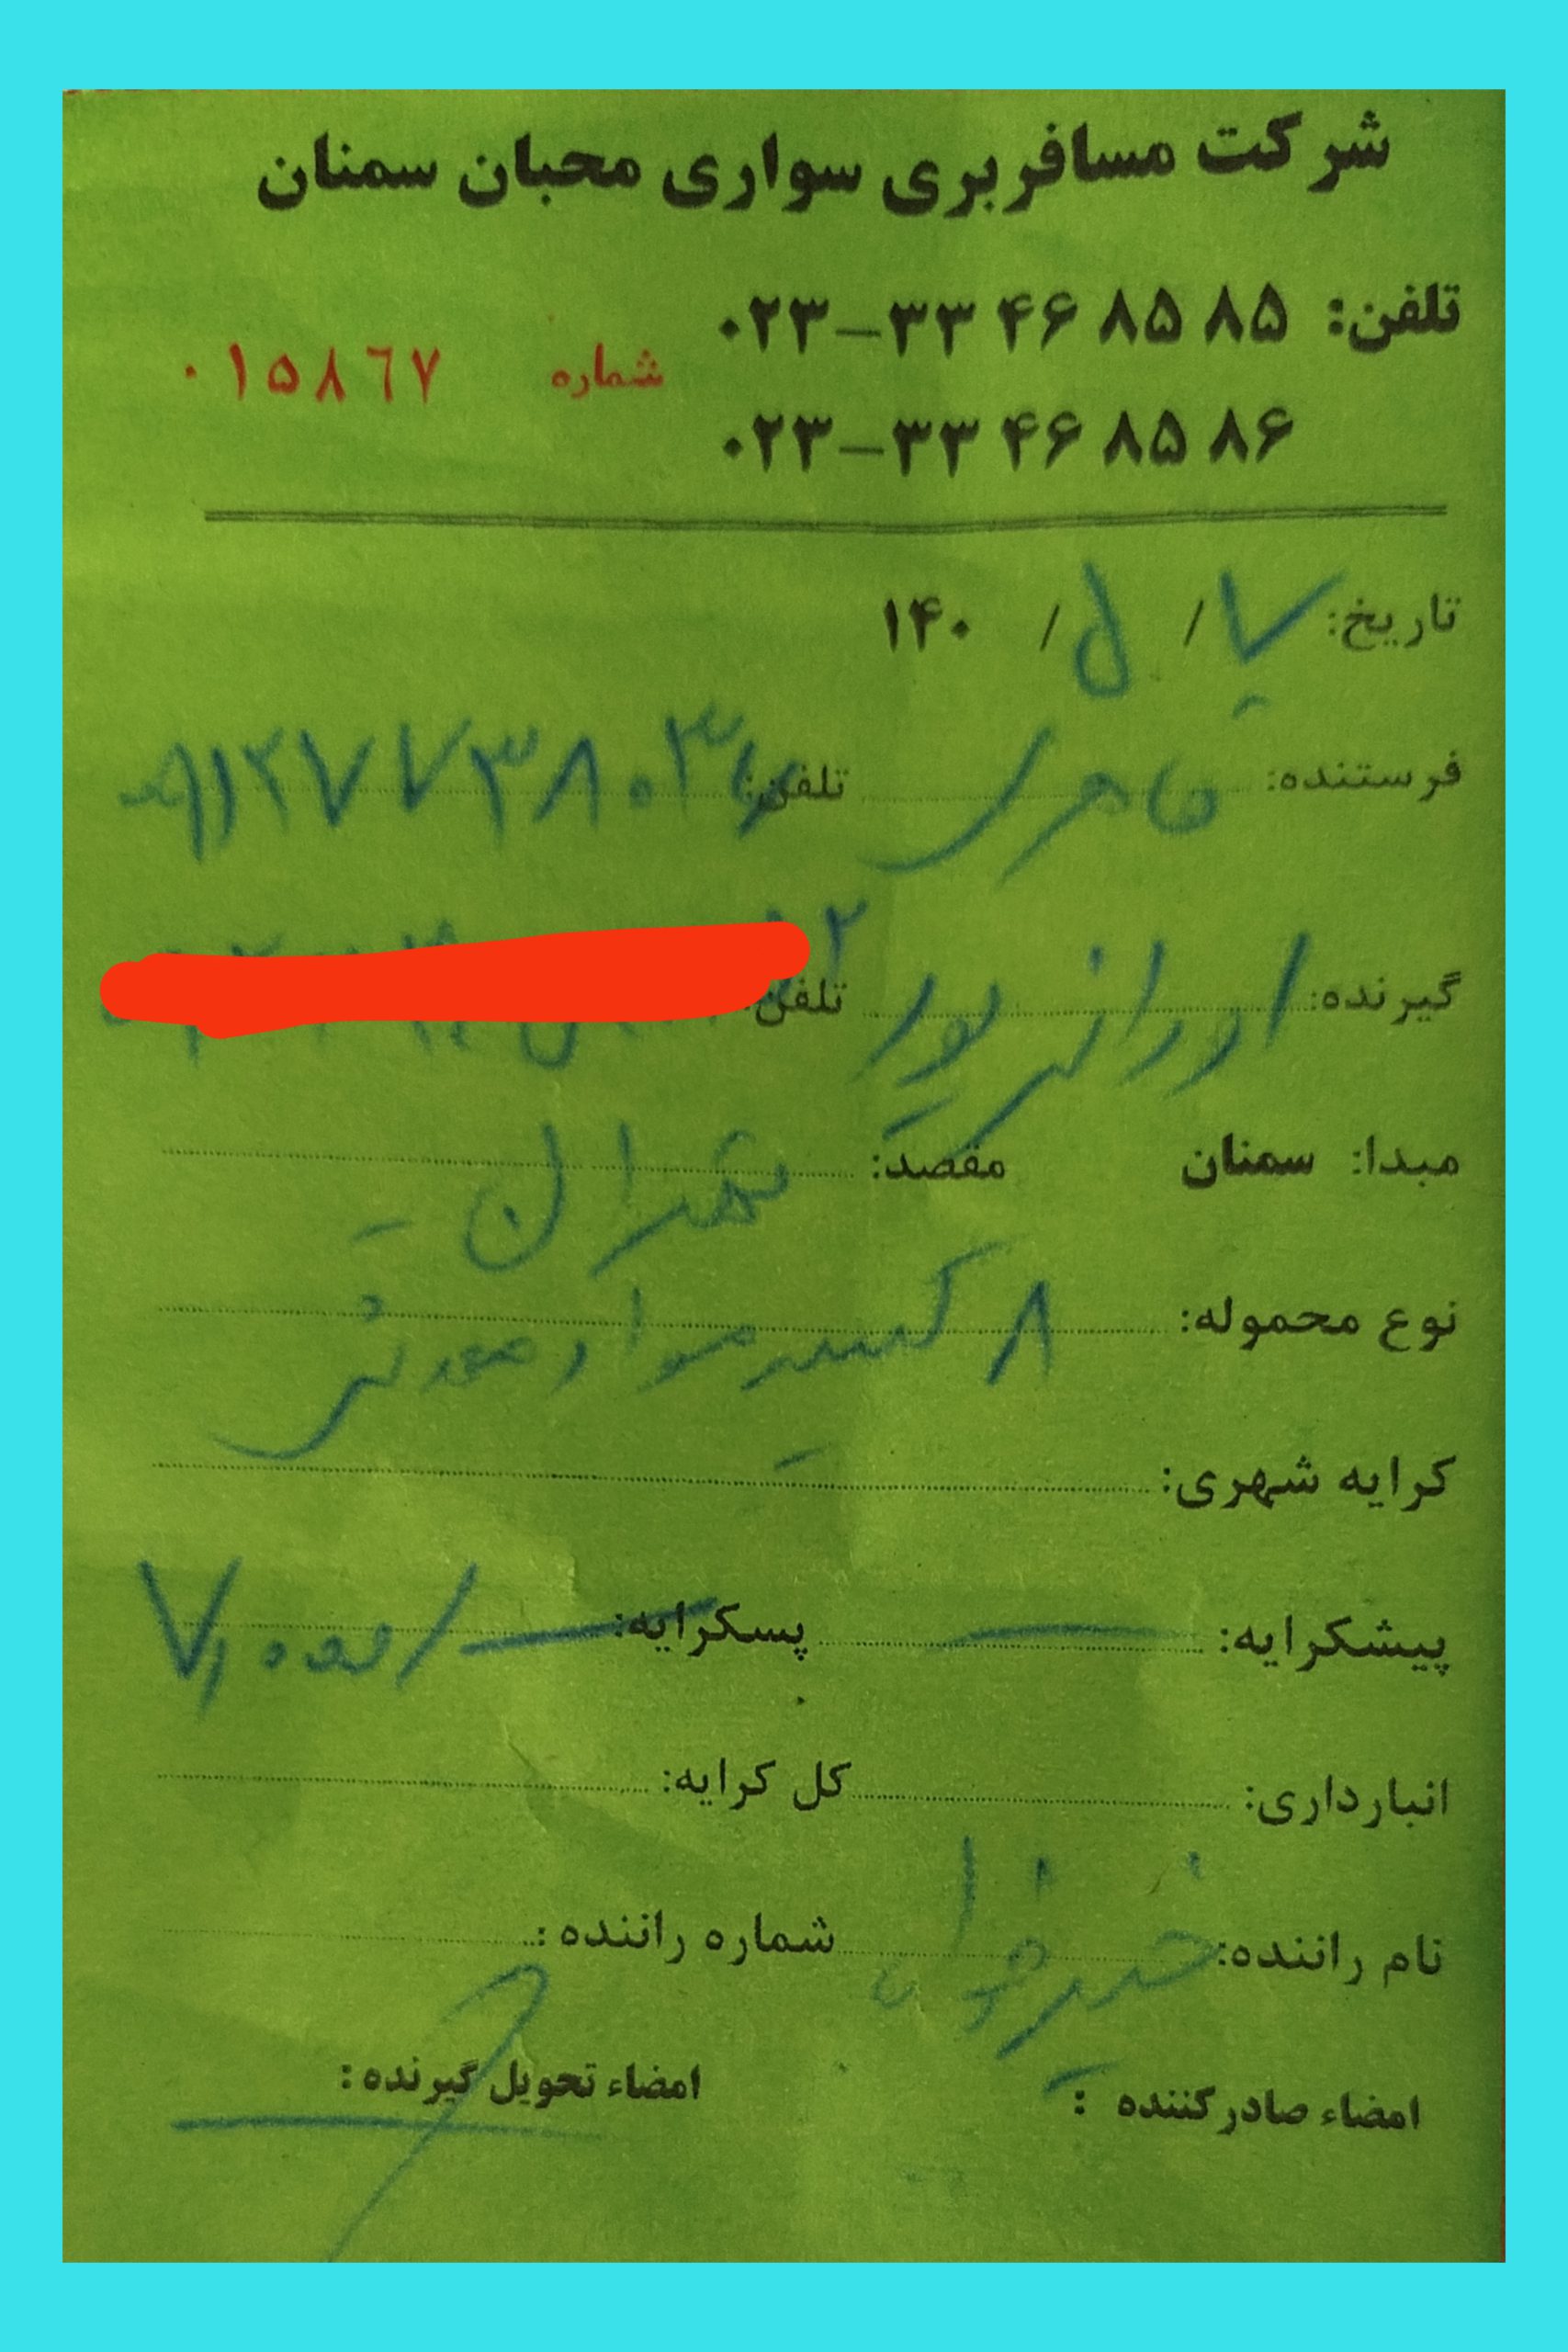 شرکت مسافربری سواری محبان سمنان
تلفن: ۰۲۳-۳۳ ۴۶ ۸۵ ۸۵
شماره ۰۱۵۸۶۷
۰۲۳-۳۳ ۴۶ ۸۵ ۸۶
تاریخ: ۷ / ۵ / ۱۴۰
فرستنده: تلفن:
گیرنده: تلفن:
مبدا: سمنان مقصد: تهران
نوع محموله: ۸ کیسه مواد معدنی
کرایه شهری:
پیشکرایه: — پسکرایه:
انبارداری: کل کرایه:
نام راننده: شماره راننده:
امضاء صادر کننده : امضاء تحویل گیرنده :